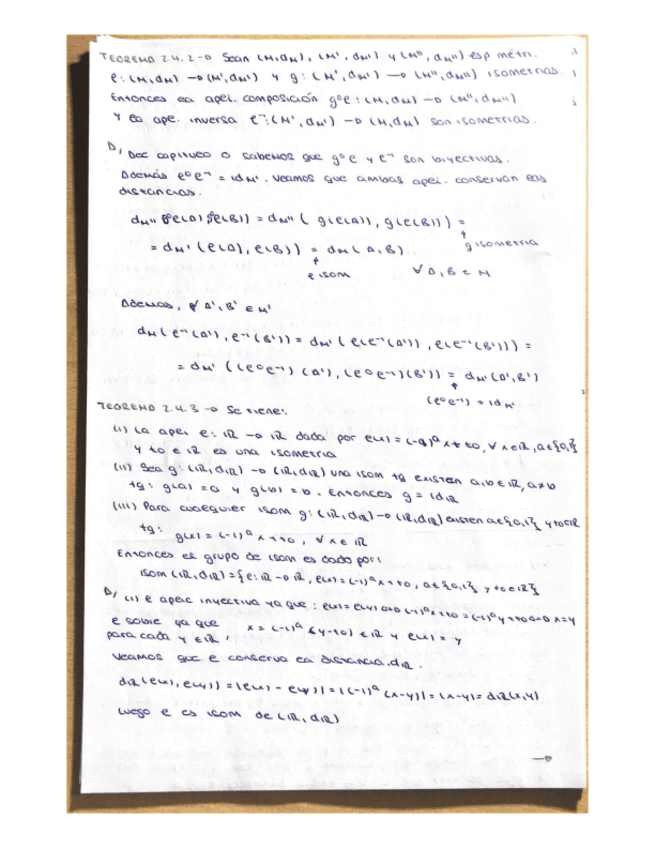 TEOREMA 2.4.2 → Sean (M,dM), (M',dM') y (M'',dM'') esp métri.
ℓ: (M,dM) → (M',dM') y g: (M',dM') → (M'',dM'') isometrías.
Entonces la apli. composición g∘ℓ: (M,dM) → (M'',dM'')
y la apl. inversa ℓ⁻¹: (M',dM') → (M,dM) son isometrías.
D/ Del capítulo 0 sabemos que g∘ℓ y ℓ⁻¹ son biyectivas.
Además ℓ∘ℓ⁻¹ = idM'. Veamos que ambas apli. conservan las
distancias.
dM''(g∘ℓ(A), g∘ℓ(B)) = dM''(g(ℓ(A)), g(ℓ(B))) =
g isometría
= dM'(ℓ(A), ℓ(B)) = dM(A,B)
ℓ isom ∀A,B ∈ M
Además, ∀A',B' ∈ M'
dM(ℓ⁻¹(A'), ℓ⁻¹(B')) = dM'(ℓ(ℓ⁻¹(A')), ℓ(ℓ⁻¹(B'))) =
= dM'((ℓ∘ℓ⁻¹)(A'), (ℓ∘ℓ⁻¹)(B')) = dM'(A',B')
(ℓ∘ℓ⁻¹) = idM'
TEOREMA 2.4.3 → Se tiene:
(i) La apli. ℓ: ℝ → ℝ dada por ℓ(x) = (-1)ᵃx + t0, ∀x∈ℝ, a∈{0,1}
y t0 ∈ ℝ es una isometría
(ii) Sea g: (ℝ,dℝ) → (ℝ,dℝ) una isom tq existen a,b∈ℝ, a≠b
tq: g(a) = a y g(b) = b. Entonces g = idℝ
(iii) Para cualquier isom g: (ℝ,dℝ) → (ℝ,dℝ) existen a∈{0,1} y t0∈ℝ
tq: g(x) = (-1)ᵃx + t0, ∀x∈ℝ
Entonces el grupo de isom es dado por:
Isom(ℝ,dℝ) = {ℓ: ℝ → ℝ, ℓ(x) = (-1)ᵃx + t0, a∈{0,1} y t0∈ℝ}
D/ (i) ℓ aplic inyectiva ya que: ℓ(x) = ℓ(y) ⇔ (-1)ᵃx + t0 = (-1)ᵃy + t0 ⇔ x = y
ℓ sobre ya que x = (-1)ᵃ(y - t0) ∈ ℝ y ℓ(x) = y
para cada y ∈ ℝ,
Veamos que ℓ conserva la distancia dℝ.
dℝ(ℓ(x), ℓ(y)) = |ℓ(x) - ℓ(y)| = |(-1)ᵃ(x-y)| = |x-y| = dℝ(x,y)
Luego ℓ es isom de (ℝ,dℝ)
→